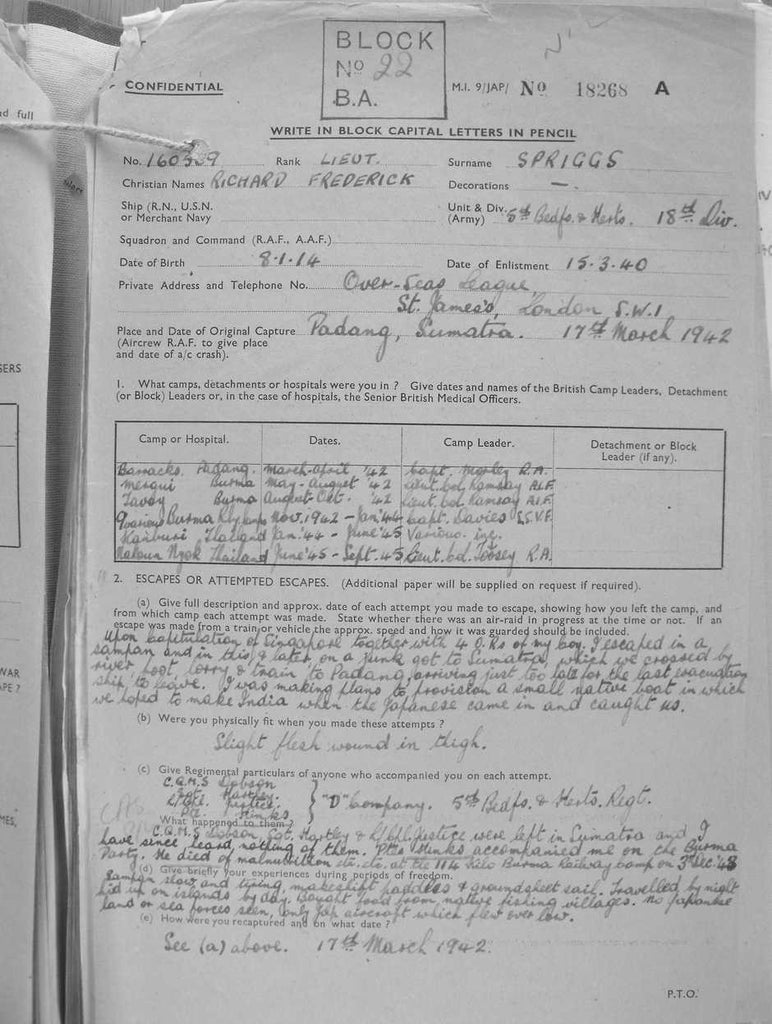 BLOCK
No 22
B.A.
CONFIDENTIAL
M.I. 9/JAP/ No 18268 A
d full
WRITE IN BLOCK CAPITAL LETTERS IN PENCIL
No. Rank LIEUT. Surname SPRIGGS
Christian Names RICHARD FREDERICK Decorations —.
Ship (R.N., U.S.N. or Merchant Navy
Unit & Div. (Army) 5th Bedfs. & Herts. 18th Div.
Squadron and Command (R.A.F., A.A.F.)
Date of Birth 8.1.14 Date of Enlistment 15.3.40
Private Address and Telephone No. Over-Seas League,
St. James's, London S.W.1
Place and Date of Original Capture Padang, Sumatra. 17th March 1942
(Aircrew R.A.F. to give place
and date of a/c crash).
1. What camps, detachments or hospitals were you in ? Give dates and names of the British Camp Leaders, Detachment
(or Block) Leaders or, in the case of hospitals, the Senior British Medical Officers.
Camp or Hospital. Dates. Camp Leader. Detachment or Block Leader (if any).
Barracks. Padang. March-April '42 Capt. Morley R.A.
Mergui Burma May-August '42 Lieut. Col. Ramsay A.I.F.
Tavoy Burma August-Oct. '42 Lieut. Col. Ramsay A.I.F.
Burma Rly Nov. 1942 - Jan '44 Capt. Davies S.S.V.F.
Kanburi Thailand Jan. '44 - June '45 Various. inc.
Thailand June '45 - Sept. 45 Lieut. Col. Toosey R.A.
2. ESCAPES OR ATTEMPTED ESCAPES. (Additional paper will be supplied on request if required).
(a) Give full description and approx. date of each attempt you made to escape, showing how you left the camp, and
from which camp each attempt was made. State whether there was an air-raid in progress at the time or not. If an
escape was made from a train or vehicle the approx. speed and how it was guarded should be included.
Upon capitulation of Singapore together with 4 O.Rs of my Coy. I escaped in a
sampan and in this & later on a junk got to Sumatra, which we crossed by
river boat, lorry & train to Padang arriving just too late for the last evacuation
ship to leave. I was making plans to provision a small native boat in which
we hoped to make India when the Japanese came in and caught us.
(b) Were you physically fit when you made these attempts ?
Slight flesh wound in thigh.
(c) Give Regimental particulars of anyone who accompanied you on each attempt.
C.Q.M.S Dobson
Sgt. Hartley
L/Cpl. Justice
Pte. Hinks
"D" Company. 5th Bedfs. & Herts. Regt.
What happened to them ?
C.Q.M.S Dobson, Sgt. Hartley & L/Cpl. Justice were left in Sumatra and I
have since heard nothing of them. Pte Hinks accompanied me on the Burma
Party. He died of malnutrition etc. etc. at the 114 Kilo Burma Railway Camp on 3rd Dec '43
(d) Give briefly your experiences during periods of freedom.
Sampan slow and tiring, makeshift paddles & groundsheet sail. Travelled by night
hid up on islands by day. Bought food from native fishing villages. No Japanese
land or sea forces seen, only Jap aircraft which flew over low.
(e) How were you recaptured and on what date ?
See (a) above. 17th March 1942.
P.T.O.